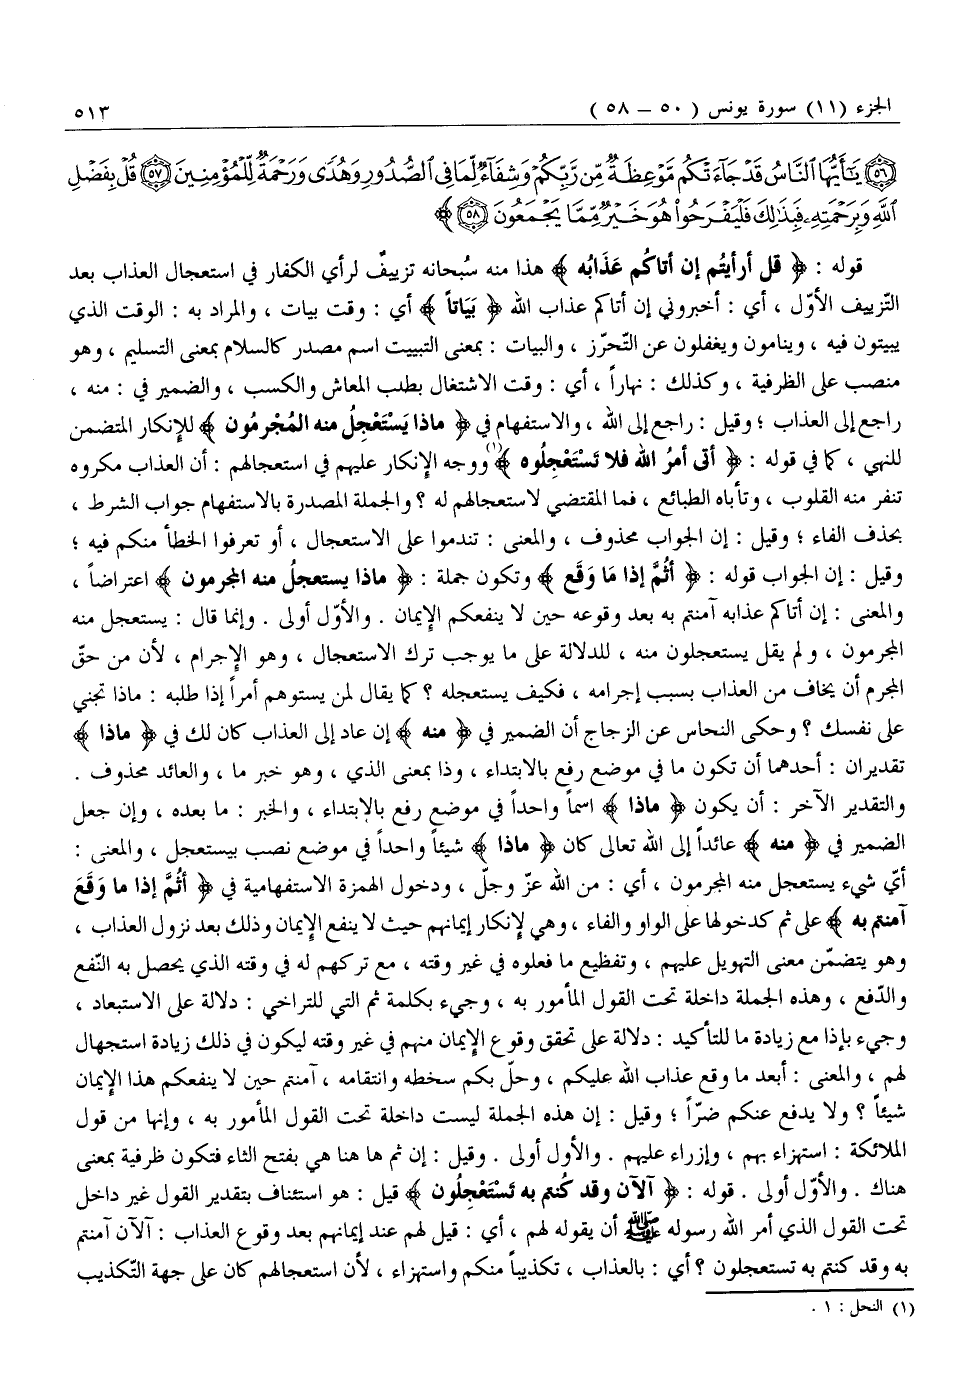 الجزء (١١) سورة يونس ( ٥٠ – ٥٨ ) ٥١٣
﴿٥٦﴾ يَٰٓأَيُّهَا ٱلنَّاسُ قَدْ جَآءَتْكُم مَّوْعِظَةٌ مِّن رَّبِّكُمْ وَشِفَآءٌ لِّمَا فِى ٱلصُّدُورِ وَهُدًى وَرَحْمَةٌ لِّلْمُؤْمِنِينَ ﴿٥٧﴾ قُلْ بِفَضْلِ
ٱللَّهِ وَبِرَحْمَتِهِۦ فَبِذَٰلِكَ فَلْيَفْرَحُوا۟ هُوَ خَيْرٌ مِّمَّا يَجْمَعُونَ ﴿٥٨﴾ ﴾
قوله : ﴿ قل أرأيتُم إن أتاكُم عَذَابُه ﴾ هذا منه سُبحانه تزييفٌ لرأي الكفار في استعجال العذاب بعد
التّزييف الأوّل ، أي : أخبروني إن أتاكم عذاب الله ﴿ بَيَاتاً ﴾ أي : وقت بيات ، والمراد به : الوقت الذي
يبيتون فيه ، وينامون ويغفلون عن التّحرّز ، والبيات : بمعنى التبييت اسم مصدر كالسلام بمعنى التسليم ، وهو
منصب على الظرفية ، وكذلك : نهاراً ، أي : وقت الاشتغال بطلب المعاش والكسب ، والضمير في : منه ،
راجع إلى العذاب ؛ وقيل : راجع إلى الله ، والاستفهام في ﴿ ماذا يَسْتَعْجِلُ منه المُجْرِمُون ﴾ للإنكار المتضمن
للنهي ، كما في قوله : ﴿ أتى أمرُ الله فلا تَسْتَعْجِلُوه ﴾(١) ووجه الإنكار عليهم في استعجالهم : أن العذاب مكروه
تنفر منه القلوب ، وتأباه الطبائع ، فما المقتضي لاستعجالهم له ؟ والجملة المصدرة بالاستفهام جواب الشرط ،
بحذف الفاء ؛ وقيل : إن الجواب محذوف ، والمعنى : تندموا على الاستعجال ، أو تعرفوا الخطأ منكم فيه ؛
وقيل : إن الجواب قوله : ﴿ أثُمَّ إذا مَا وَقَع ﴾ وتكون جملة : ﴿ ماذا يستعجلُ منه المجرمون ﴾ اعتراضاً ،
والمعنى : إن أتاكم عذابه آمنتم به بعد وقوعه حين لا ينفعكم الإيمان . والأوّل أولى . وإنما قال : يستعجل منه
المجرمون ، ولم يقل يستعجلون منه ، للدلالة على ما يوجب ترك الاستعجال ، وهو الإجرام ، لأن من حقّ
المجرم أن يخاف من العذاب بسبب إجرامه ، فكيف يستعجله ؟ كما يقال لمن يستوهم أمراً إذا طلبه : ماذا تجني
على نفسك ؟ وحكى النحاس عن الزجاج أن الضمير في ﴿ منه ﴾ إن عاد إلى العذاب كان لك في ﴿ ماذا ﴾
تقديران : أحدهما أن تكون ما في موضع رفع بالابتداء ، وذا بمعنى الذي ، وهو خبر ما ، والعائد محذوف .
والتقدير الآخر : أن يكون ﴿ ماذا ﴾ اسماً واحداً في موضع رفع بالإبتداء ، والخبر : ما بعده ، وإن جعل
الضمير في ﴿ منه ﴾ عائداً إلى الله تعالى كان ﴿ ماذا ﴾ شيئاً واحداً في موضع نصب بيستعجل ، والمعنى :
أيّ شيء يستعجل منه المجرمون ، أي : من الله عزّ وجلّ ، ودخول الهمزة الاستفهامية في ﴿ أثُمَّ إذا ما وَقَعَ
آمنتم به ﴾ على ثم كدخولها على الواو والفاء ، وهي لإنكار إيمانهم حيث لا ينفع الإيمان وذلك بعد نزول العذاب ،
وهو يتضمّن معنى التهويل عليهم ، وتفظيع ما فعلوه في غير وقته ، مع تركهم له في وقته الذي يحصل به النّفع
والدّفع ، وهذه الجملة داخلة تحت القول المأمور به ، وجيء بكلمة ثم التي للتراخي : دلالة على الاستبعاد ،
وجيء بإذا مع زيادة ما للتأكيد : دلالة على تحقق وقوع الإيمان منهم في غير وقته ليكون في ذلك زيادة استجهال
لهم ، والمعنى : أبعد ما وقع عذاب الله عليكم ، وحلّ بكم سخطه وانتقامه ، آمنتم حين لا ينفعكم هذا الإيمان
شيئاً ؟ ولا يدفع عنكم ضرّاً ؛ وقيل : إن هذه الجملة ليست داخلة تحت القول المأمور به ، وإنها من قول
الملائكة : استهزاء بهم ، وإزراء عليهم . والأول أولى . وقيل : إن ثم ها هنا هي بفتح الثاء فتكون ظرفية بمعنى
هناك . والأوّل أولى . قوله : ﴿ آلآن وقد كُنتم به تَسْتَعْجِلُون ﴾ قيل : هو استئناف بتقدير القول غير داخل
تحت القول الذي أمر الله رسوله ﷺ أن يقوله لهم ، أي : قيل لهم عند إيمانهم بعد وقوع العذاب : آلآن آمنتم
به وقد كنتم به تستعجلون ؟ أي : بالعذاب ، تكذيباً منكم واستهزاء ، لأن استعجالهم كان على جهة التّكذيب
(١) النحل : ١ .